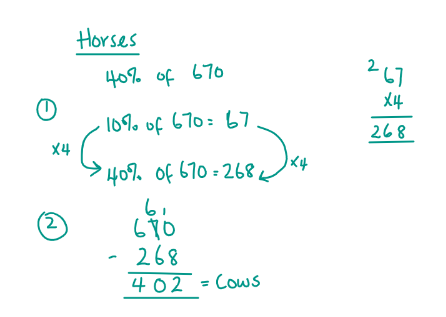 Horses
40% of 670
① 10% of 670 = 67
x4 x4
40% of 670 = 268
2 67
x4
268
②
6 1
670
- 268
402 = Cows